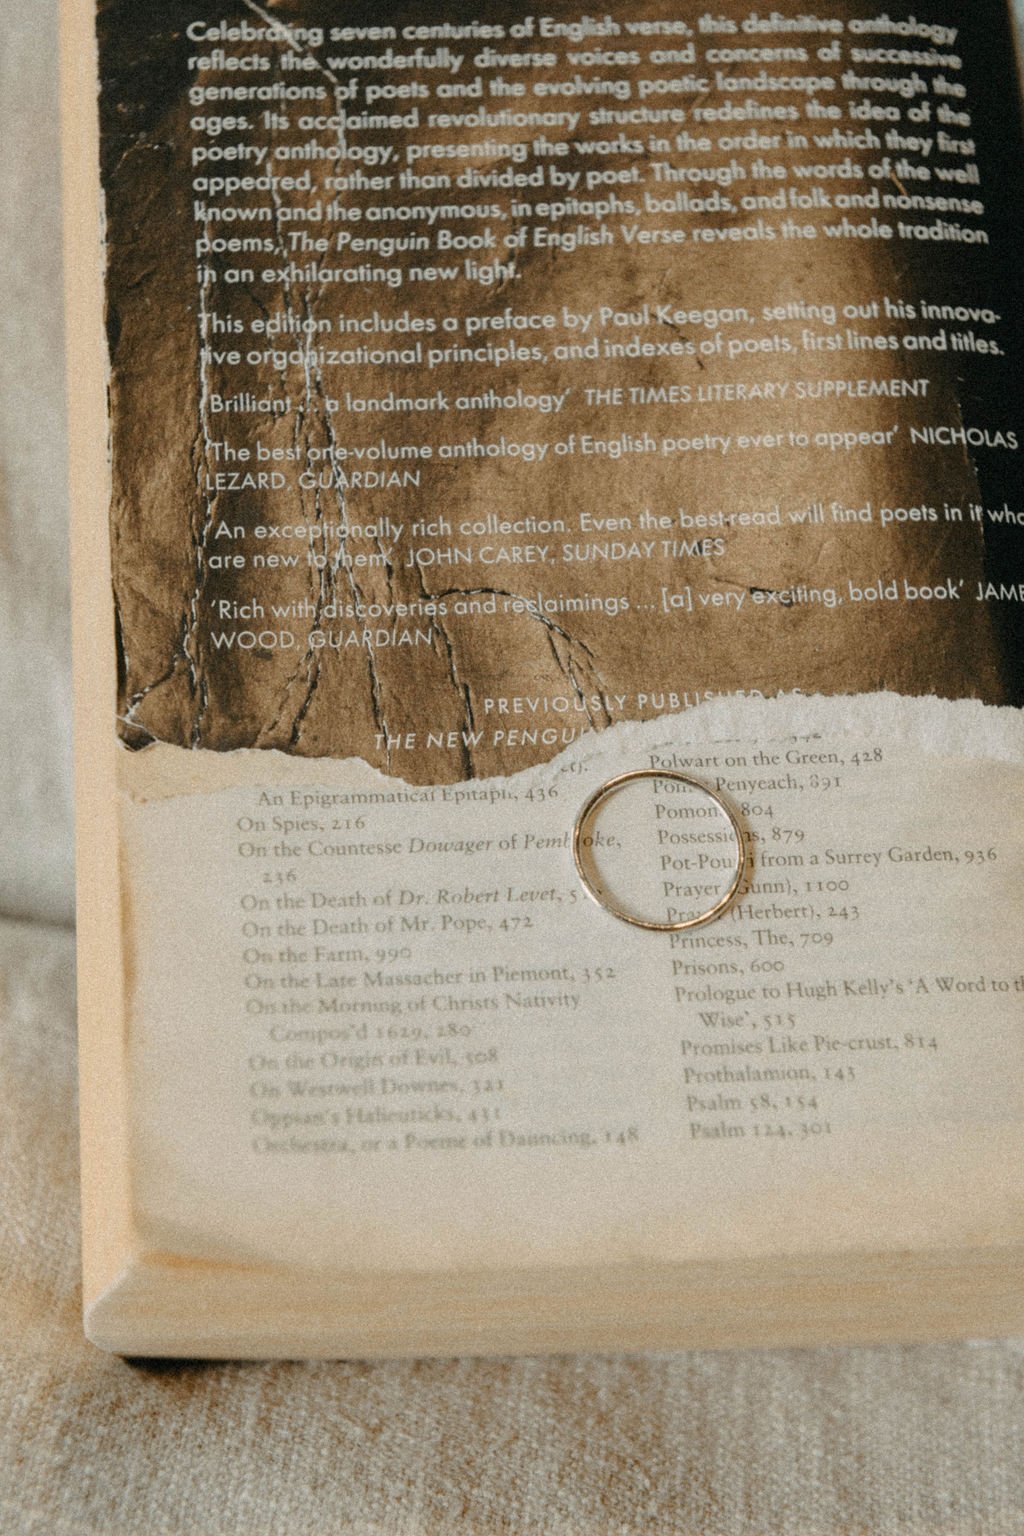 Celebrating seven centuries of English verse, this definitive anthology
reflects the wonderfully diverse voices and concerns of successive
generations of poets and the evolving poetic landscape through the
ages. Its acclaimed revolutionary structure redefines the idea of the
poetry anthology, presenting the works in the order in which they first
appeared, rather than divided by poet. Through the words of the well
known and the anonymous, in epitaphs, ballads, and folk and nonsense
poems, The Penguin Book of English Verse reveals the whole tradition
in an exhilarating new light.
This edition includes a preface by Paul Keegan, setting out his innova-
tive organizational principles, and indexes of poets, first lines and titles.
'Brilliant ... a landmark anthology' THE TIMES LITERARY SUPPLEMENT
'The best one-volume anthology of English poetry ever to appear' NICHOLAS
LEZARD, GUARDIAN
'An exceptionally rich collection. Even the best-read will find poets in it who
are new to them' JOHN CAREY, SUNDAY TIMES
'Rich with discoveries and reclaimings ... [a] very exciting, bold book' JAME
WOOD, GUARDIAN
PREVIOUSLY PUBLISHED AS
THE NEW PENGUI
An Epigrammatical Epitaph, 436
On Spies, 216
On the Countesse Dowager of Pembroke,
236
On the Death of Dr. Robert Levet, 5
On the Death of Mr. Pope, 472
On the Farm, 990
On the Late Massacher in Piemont, 352
On the Morning of Christs Nativity
Compos'd 1629, 280
On the Origin of Evil, 508
On Westwell Downes, 321
Oppian's Halieuticks, 431
Orchestra, or a Poeme of Dauncing, 148
Polwart on the Green, 428
Pomes Penyeach, 891
Pomona, 804
Possessions, 879
Pot-Pourri from a Surrey Garden, 936
Prayer (Gunn), 1100
Prayer (Herbert), 243
Princess, The, 709
Prisons, 600
Prologue to Hugh Kelly's 'A Word to th
Wise', 515
Promises Like Pie-crust, 814
Prothalamion, 143
Psalm 58, 154
Psalm 124, 301